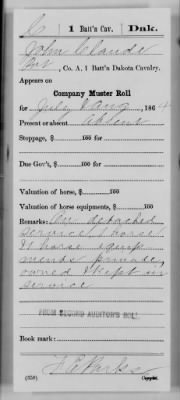 C | 1 Batt'n Cav. | Dak.
John Claude
Pvt, Co. A, 1 Batt'n Dakota Cavalry.
Appears on
Company Muster Roll
for July & Aug, 1864.
Present or absent Absent
Stoppage, $ 100 for
Due Gov't, $ 100 for
Valuation of horse, $ 100
Valuation of horse equipments, $ 100
Remarks: On detached
service, 1 horse
& 1 horse equip
ments private,
owned & kept in
service
FROM SECOND AUDITOR'S ROLL
Book mark:
(358)
Copyist.